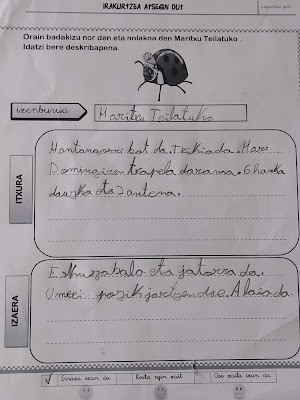 IRAKURTZEA ATSEGIN DUT
Orain badakizu nor den eta nolakoa den Maritxu Teilatuko .
Idatzi bere deskribapena.
izenburua
Maritxu Teilatuko
ITXURA
kot da. Txikia da. Mari
txapela darama. 6 hanka
dauzka eta 2 antena.
IZAERA
Eskuzabala eta jatorra da.
Umeei pozik jartzen die. Alaia da
Erraza izan da
Kosta egin zait
Oso zaila izan da